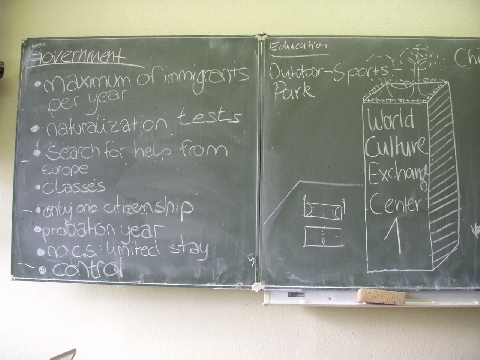 Government
• maximum of immigrants
per year
• naturalization tests
• Search for help from
Europe
• classes
• only one citizenship
• probation year
• no c.s: limited stay
• control
Education
Outdoor-Sports
Park
World
Culture
Exchang
Center
Chi